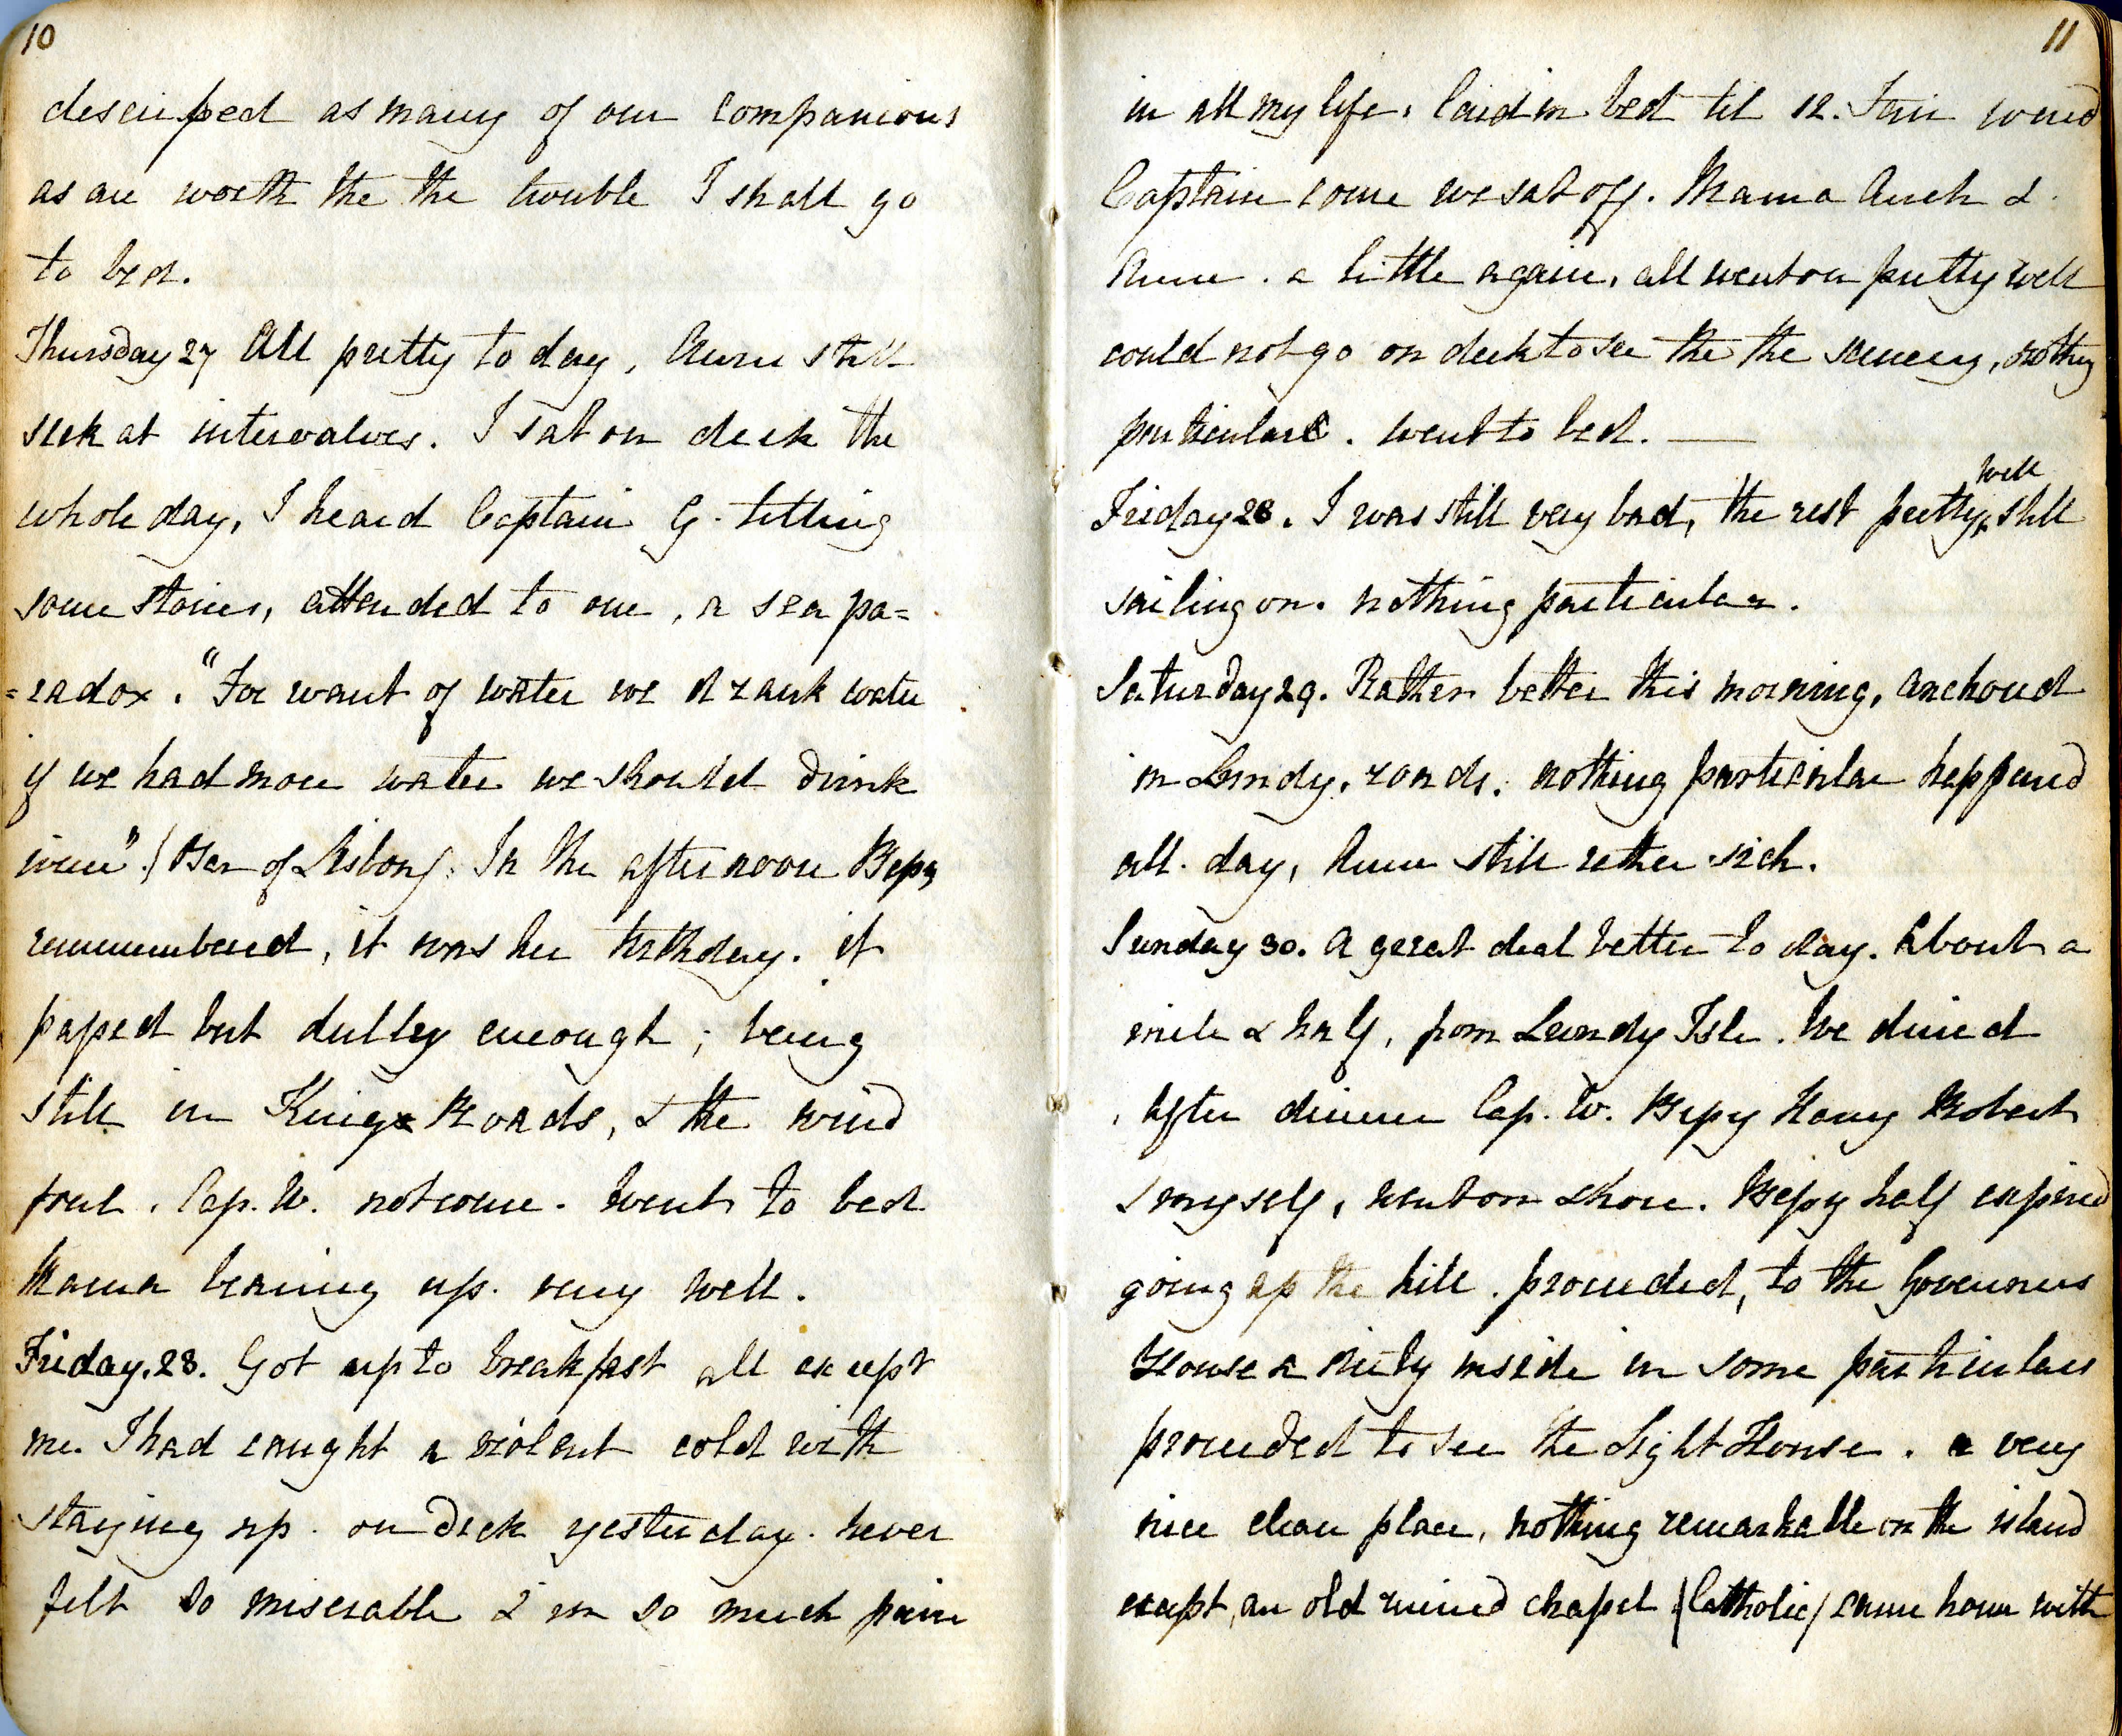 10
descriped as many of our companions
as are worth the the trouble I shall go
to bed.
Thursday 27 All pretty to day, Anne still
sick at intervalves. I sat on deck the
whole day, I heard Captain G. telling
some stories, attended to one, a sea pa=
=radox. "For want of water we drank water
if we had more water we should drink
wine" (Bar of Lisbon). In the afternoon Bepy
remembered, it was her birthday. it
passed but dulley enough; being
still in Kings Roads, & the wind
foul. Cap. W. not come. Went to bed
Mama bearing up. very well.
Friday. 28. Got up to breakfast all except
me. I had caught a violent cold with
staying up. on deck yesterday. never
felt so miserable & in so much pain
11
in all my life, laid in bed til 12. Fair wind
Captain come we sat off. Mama sick &
Anne. a little again, all went on pretty well
could not go on deck to see the the scenery, nothing
particular. went to bed. —
Friday 28. I was still very bad, the rest pretty well still
sailing on. nothing particular.
Saturday 29. Rather better this morning, anchoud
in Lundy, roads. nothing particular happened
all. day, Anne still rather sick.
Sunday 30. A great deal better to day. About a
mile & half, from Lundy Isle. We dined
, After dinner Cap. W. Bepy Harry Robert
& myself, went on shore. Bepy half expired
going up the hill. proceeded, to the Governors
House a nicely inside in some particulars
proceeded to see the Light House. a very
nice clean place, nothing remarkable on the island
except, an old ruined chapel (Catholic) came home with